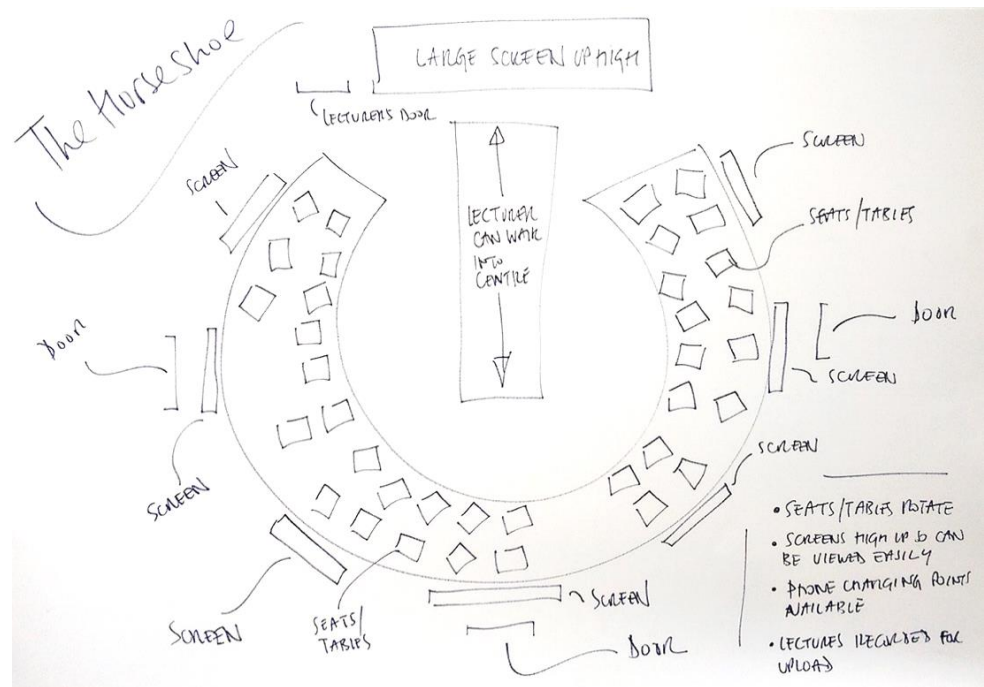 The Horseshoe
LARGE SCREEN UP HIGH
LECTURERS DOOR
SCREEN
SCREEN
SEATS/TABLES
LECTURER
CAN WALK
INTO
CENTRE
DOOR
DOOR
SCREEN
SCREEN
SCREEN
SCREEN
SEATS/
TABLES
SCREEN
DOOR
• SEATS/TABLES ROTATE
• SCREENS HIGH UP SO CAN
BE VIEWED EASILY
• PHONE CHARGING POINTS
AVAILABLE
• LECTURES RECORDED FOR
UPLOAD